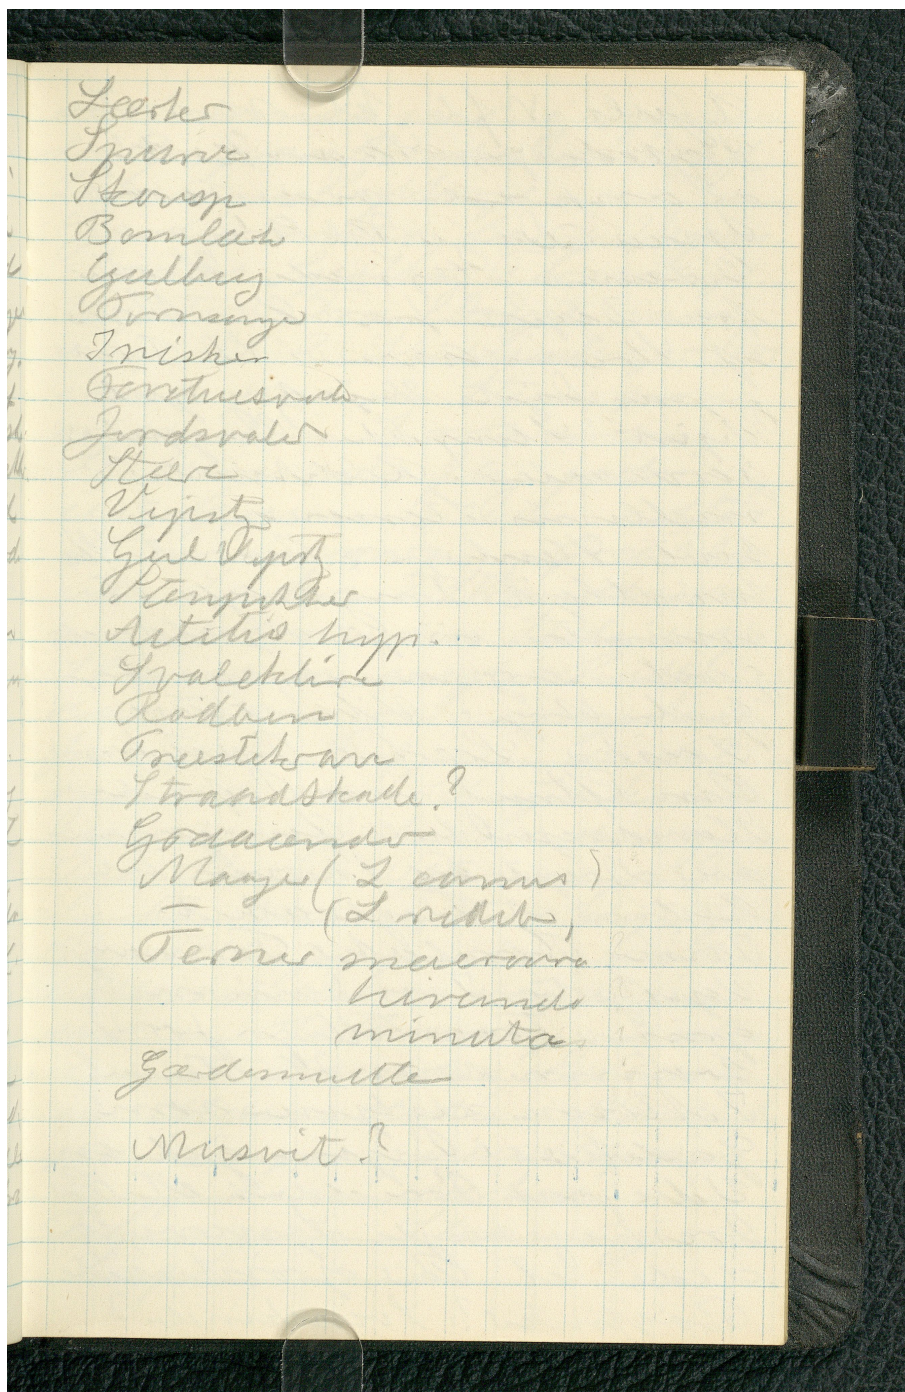 Lærker
Spurve
Skovsp
Bomlærk
Gulbug
Tornsanger
Irisker
Forstuesvale
Jordsvaler
Stære
Vipst
Gul Vipst
Stenpikker
Actitis hyp.
Svaleklire
Rødben
Præstekrave
Strandskade?
Graaænder
Maager (L canus)
— (L ridib,
Terner macrura
hirundo
minuta
Gærdesmutte
Musvit?